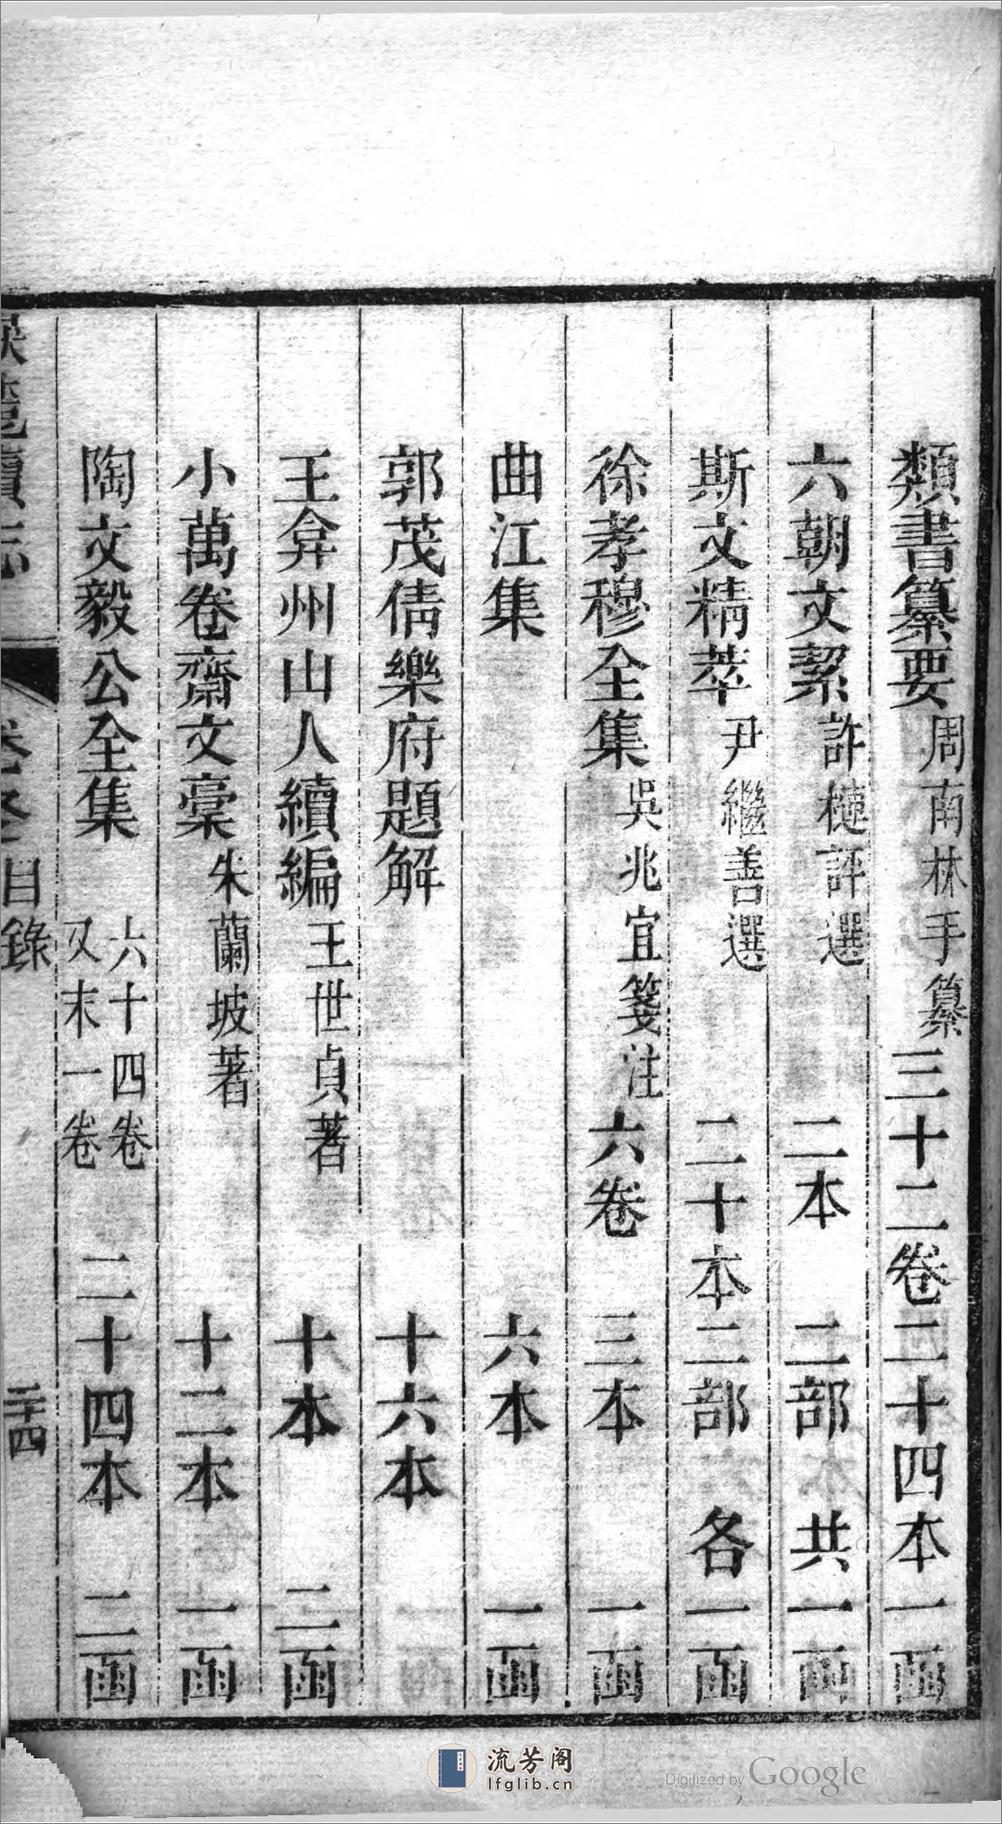 類書纂要周南林手纂三十二卷二十四本一函
六朝文絜許槤評選 二本 二部 共一函
斯文精萃尹繼善選 二十本二部 各一函
徐孝穆全集吳兆宜箋注六卷 三本 一函
曲江集 六本 一函
郭茂倩樂府題解 十六本
王弇州山人續編王世貞著 十本 二函
小萬卷齋文稾朱蘭坡著 十二本 一函
陶文毅公全集六十四卷 又末一卷 二十四本 二函
麓續志 卷 目錄 二十四
流芳阁
lfglib.cn
Digitized by Google